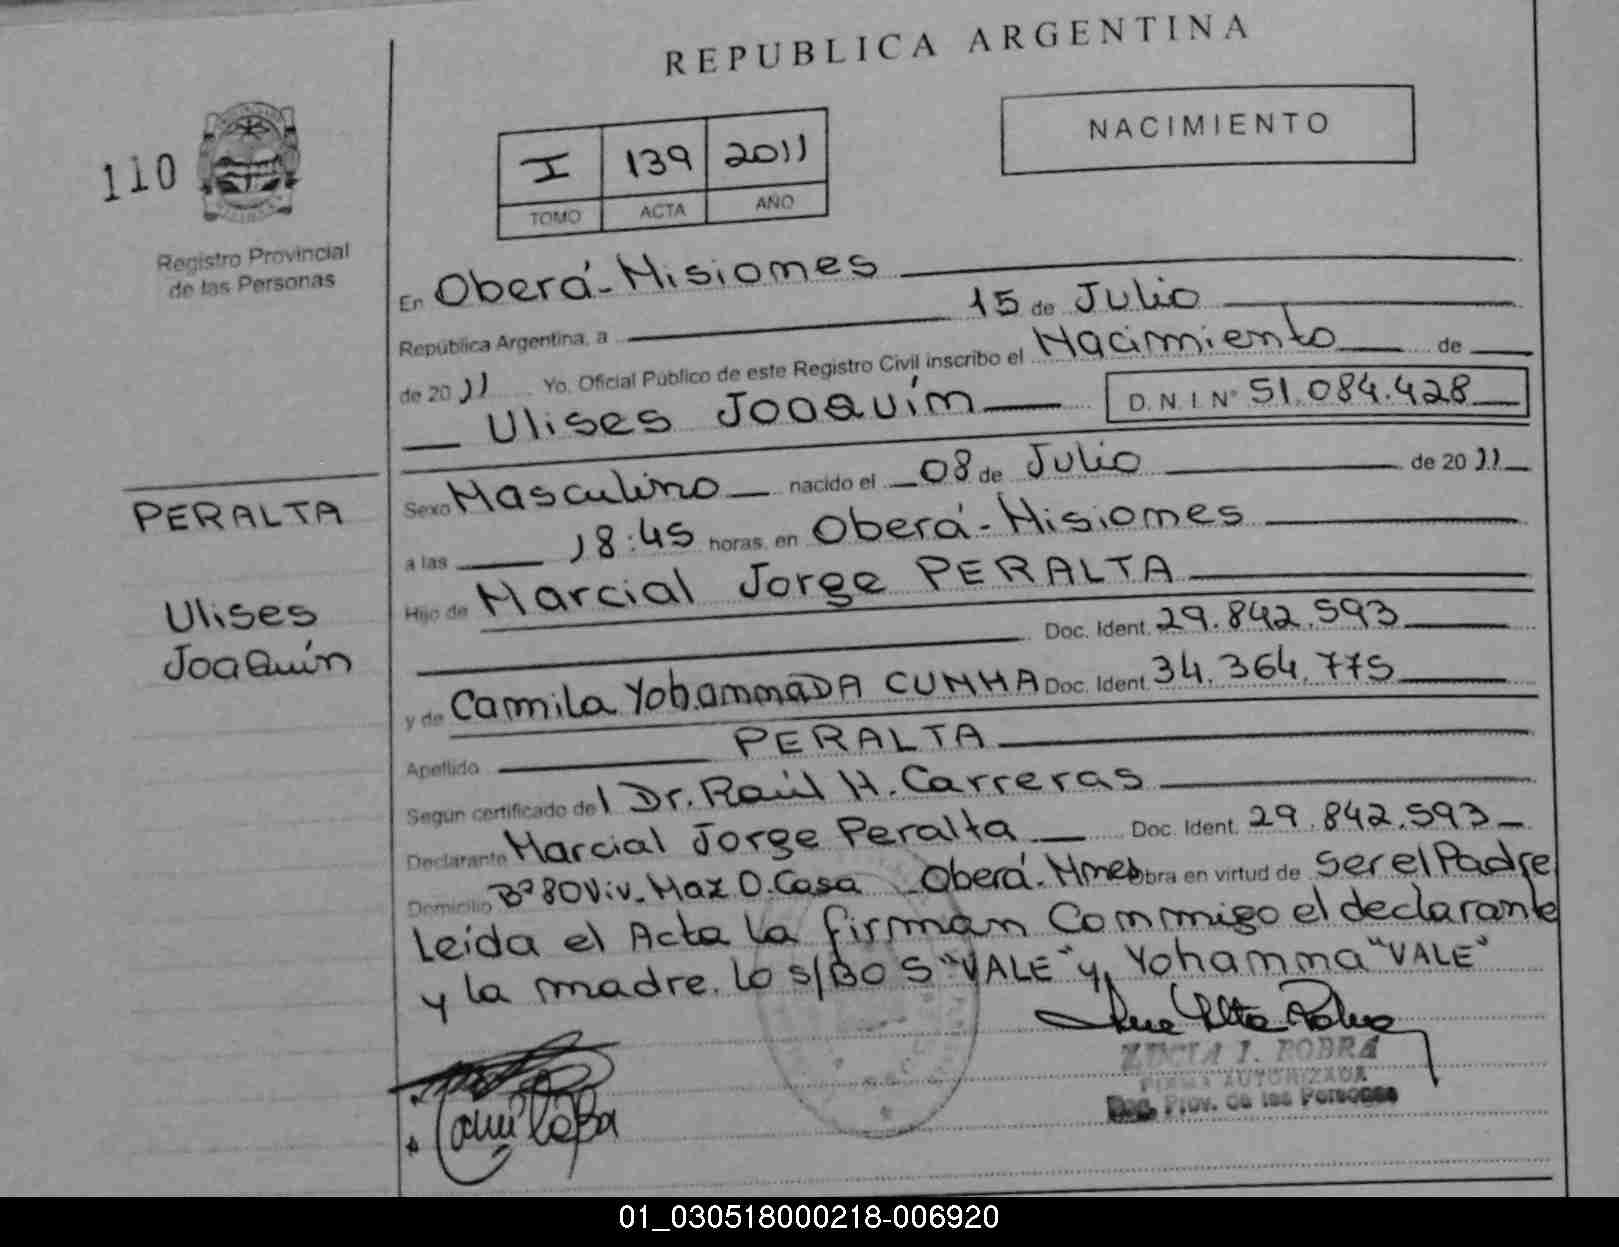 REPUBLICA ARGENTINA
NACIMIENTO
110
I 139 2011
TOMO ACTA AÑO
Registro Provincial
de las Personas
En Oberá-Misiones
República Argentina, a 15 de Julio
de 2011 Yo, Oficial Público de este Registro Civil inscribo el Nacimiento de
Ulises Joaquín D.N.I. Nº 51.084.428
PERALTA
Ulises
Joaquín
Sexo Masculino nacido el 08 de Julio de 2011
a las 18:45 horas, en Oberá-Misiones
Hijo de Marcial Jorge PERALTA
Doc. Ident. 29.842.593
y de Camila Yohanna DA CUNHA Doc. Ident. 34.364.775
Apellido PERALTA
Según certificado del Dr. Raúl H. Carreras
Declarante Marcial Jorge Peralta Doc. Ident. 29.842.593
Domicilio Bº 80 Viv. Maz D. Casa Oberá-Mnes Obra en virtud de ser el Padre
Leída el Acta la firman Conmigo el declarante
y la madre. lo s/BO S "VALE" y, Yohanna "VALE"
FIRMA AUTORIZADA
Prov. de las Personas
01_030518000218-006920